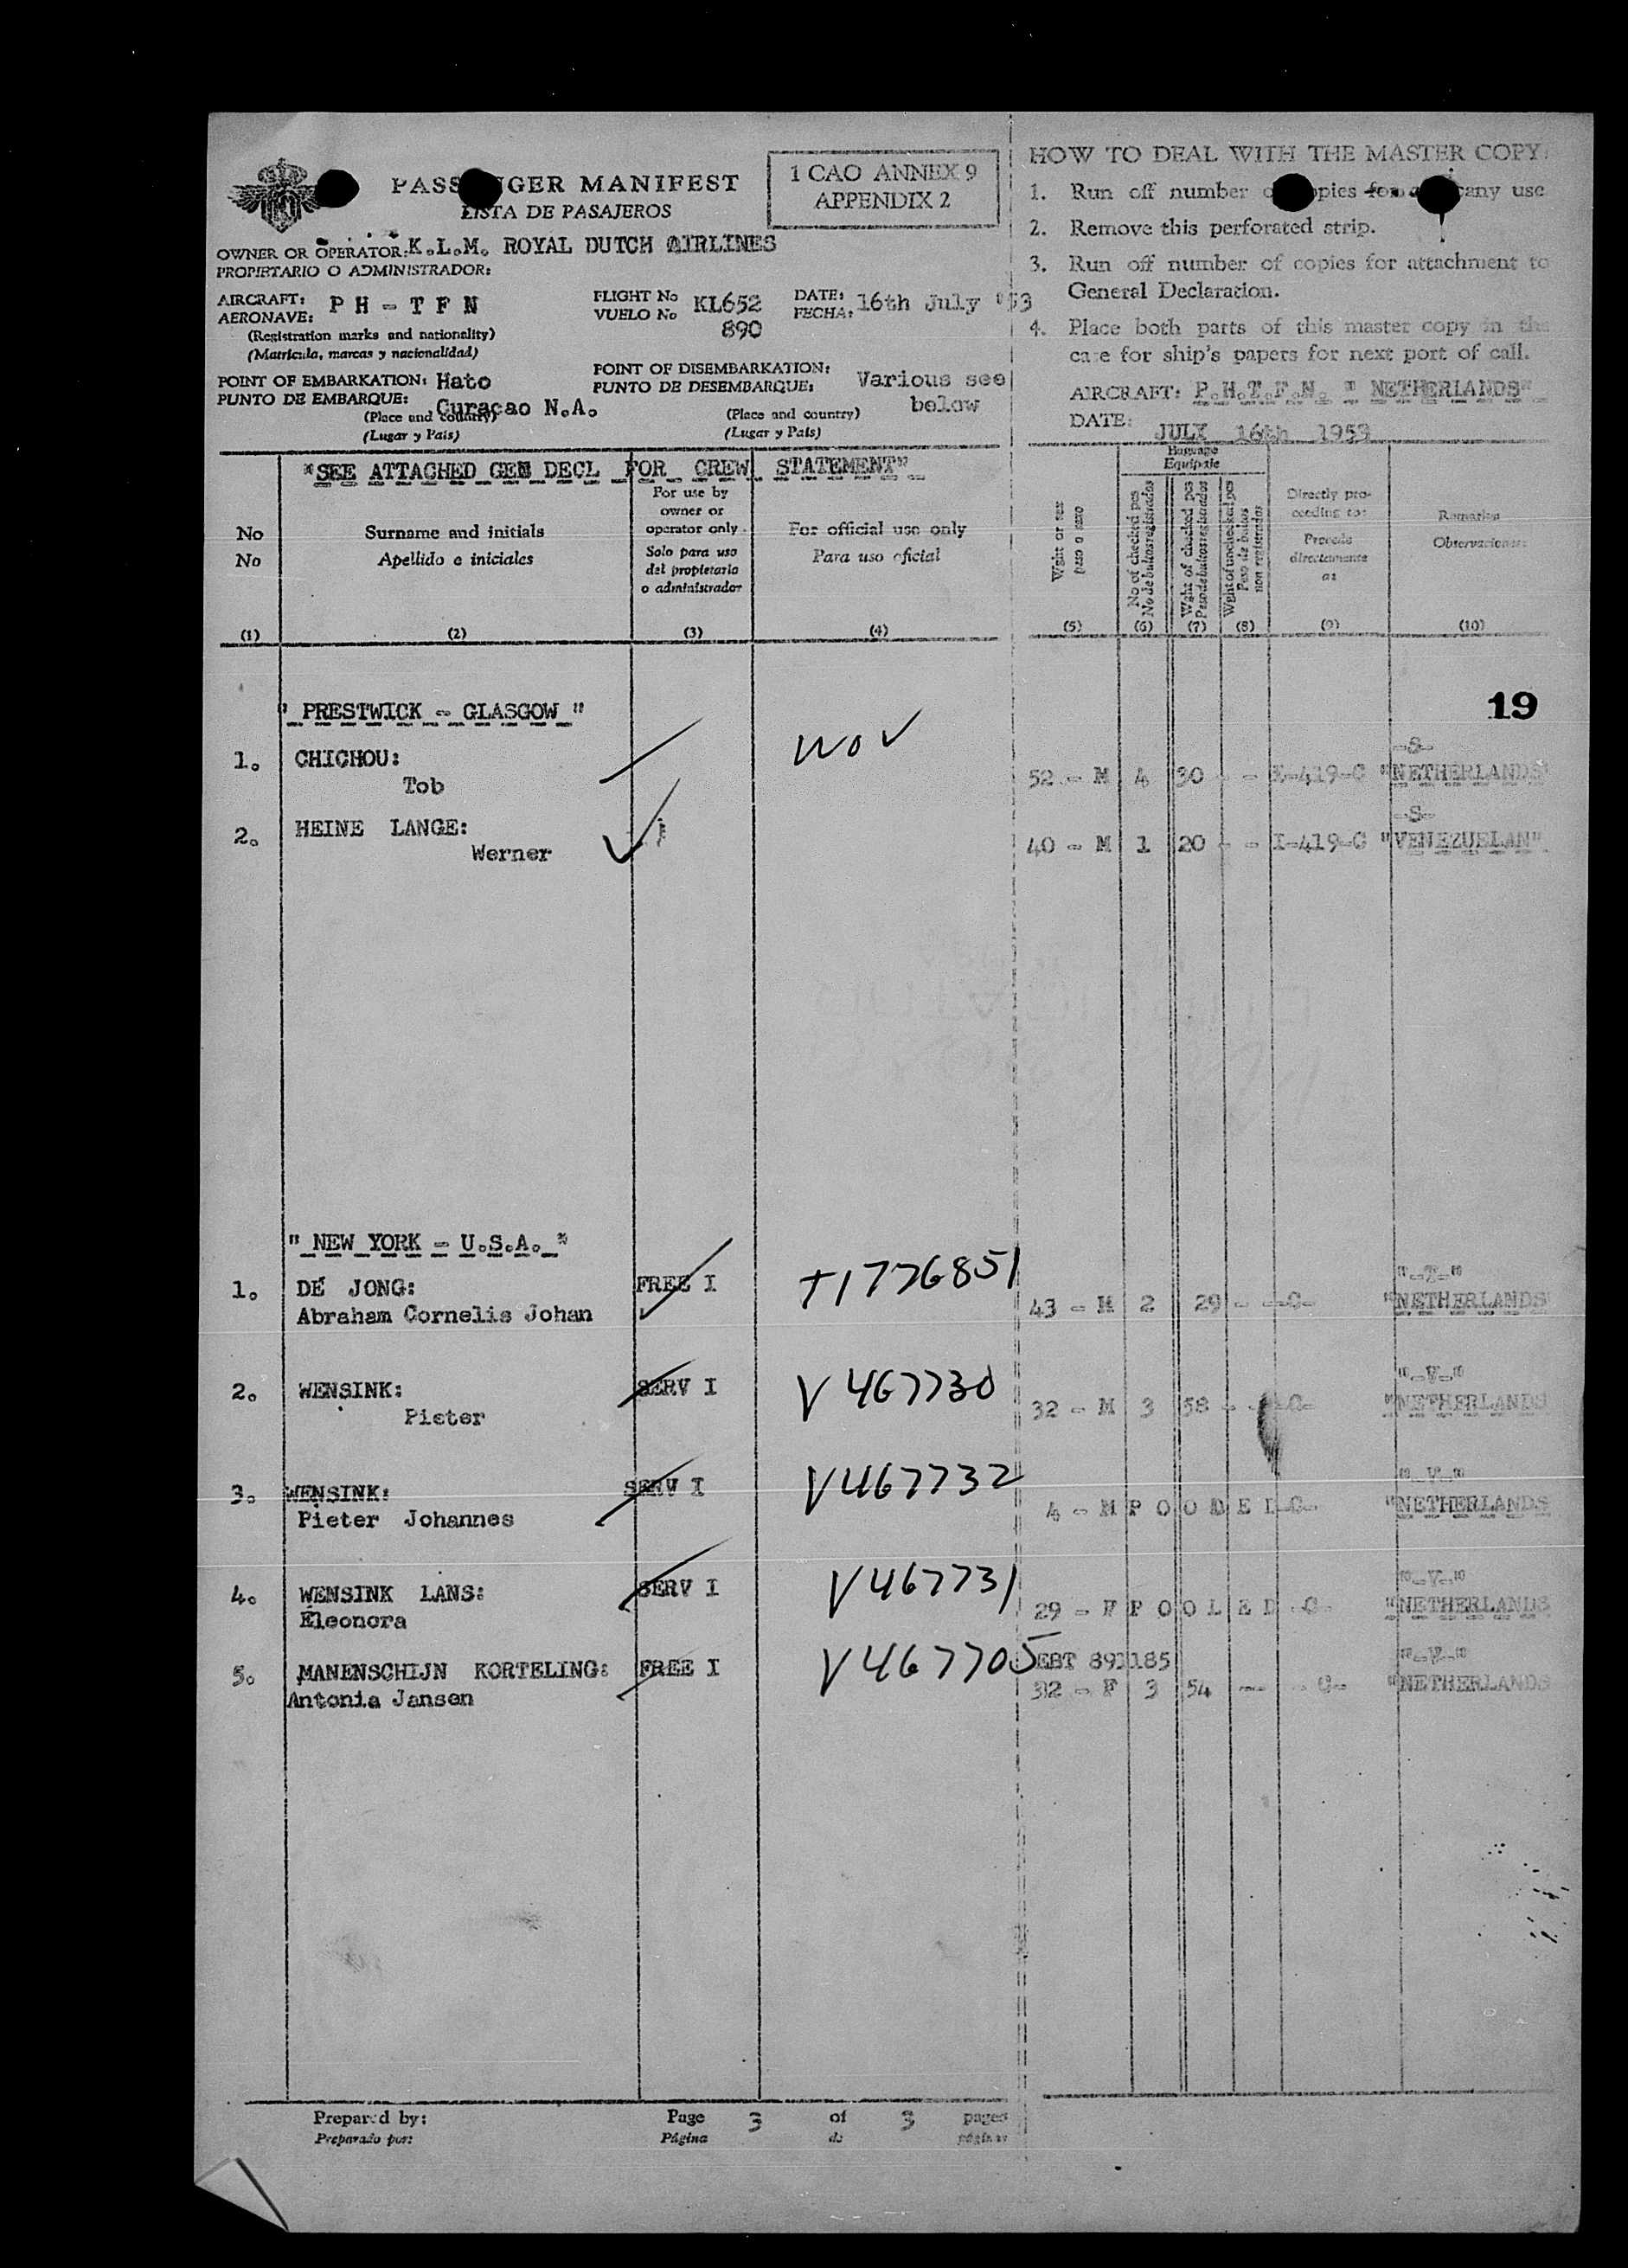 PASSENGER MANIFEST
LISTA DE PASAJEROS
1 CAO ANNEX 9
APPENDIX 2
OWNER OR OPERATOR: K.L.M. ROYAL DUTCH AIRLINES
PROPIETARIO O ADMINISTRADOR:
AIRCRAFT: PH-TFN
AERONAVE:
(Registration marks and nationality)
(Matricula, marcas y nacionalidad)
FLIGHT No KL652
VUELO No 890
DATE: 16th July '53
FECHA:
POINT OF EMBARKATION: Hato
PUNTO DE EMBARQUE: Curaçao N.A.
(Place and country)
(Lugar y Pais)
POINT OF DISEMBARKATION: Various see
PUNTO DE DESEMBARQUE: below
(Place and country)
(Lugar y Pais)
HOW TO DEAL WITH THE MASTER COPY:
1. Run off number of copies for any use
2. Remove this perforated strip.
3. Run off number of copies for attachment to
General Declaration.
4. Place both parts of this master copy in the
case for ship's papers for next port of call.
AIRCRAFT: P.H.T.F.N. " NETHERLANDS"
DATE: JULY 16th 1953
"SEE ATTACHED GEN DECL FOR CREW STATEMENT"
No
No
(1)
Surname and initials
Apellido e iniciales
(2)
For use by
owner or
operator only
Solo para uso
del propietario
o administrador
(3)
For official use only
Para uso oficial
(4)
Wght or sex
peso o sexo
(5)
Baggage
Equipaje
No of checked pcs
No de bultos registrados
(6)
Wght of checked pcs
Peso de bultos registrados
(7)
Wght of unchecked pcs
Peso de bultos
non registrados
(8)
Directly pro-
ceeding to:
Procede
directamente
a:
(9)
Remarks
Observaciones:
(10)
19
" PRESTWICK - GLASGOW "
1. CHICHOU: WOV -S-
Tob 52 - M 4 30 - - I-419-C "NETHERLANDS"
2. HEINE LANGE: -S-
Werner 40 - M 1 20 - - I-419-C "VENEZUELAN"
" NEW YORK - U.S.A. "
1. DE JONG: FREE I T1776851 "-T-"
Abraham Cornelis Johan 43 - M 2 29 - -C- "NETHERLANDS"
2. WENSINK: SERV I V467730 "-V-"
Pieter 32 - M 3 58 - - -C- "NETHERLANDS
3. WENSINK: SERV I V467732 "-V-"
Pieter Johannes 4 - M P O O D E L -C- "NETHERLANDS
4. WENSINK LANS: SERV I V467731 "-V-"
Eleonora 29 - F P O O L E D -C- "NETHERLANDS
5. MANENSCHIJN KORTELING: FREE I V467705 EBT 893185 "-V-"
Antonia Jansen 32 - F 3 54 -- -C- "NETHERLANDS
Prepared by:
Preparado por:
Page 3 of 3 pages
Página de páginas